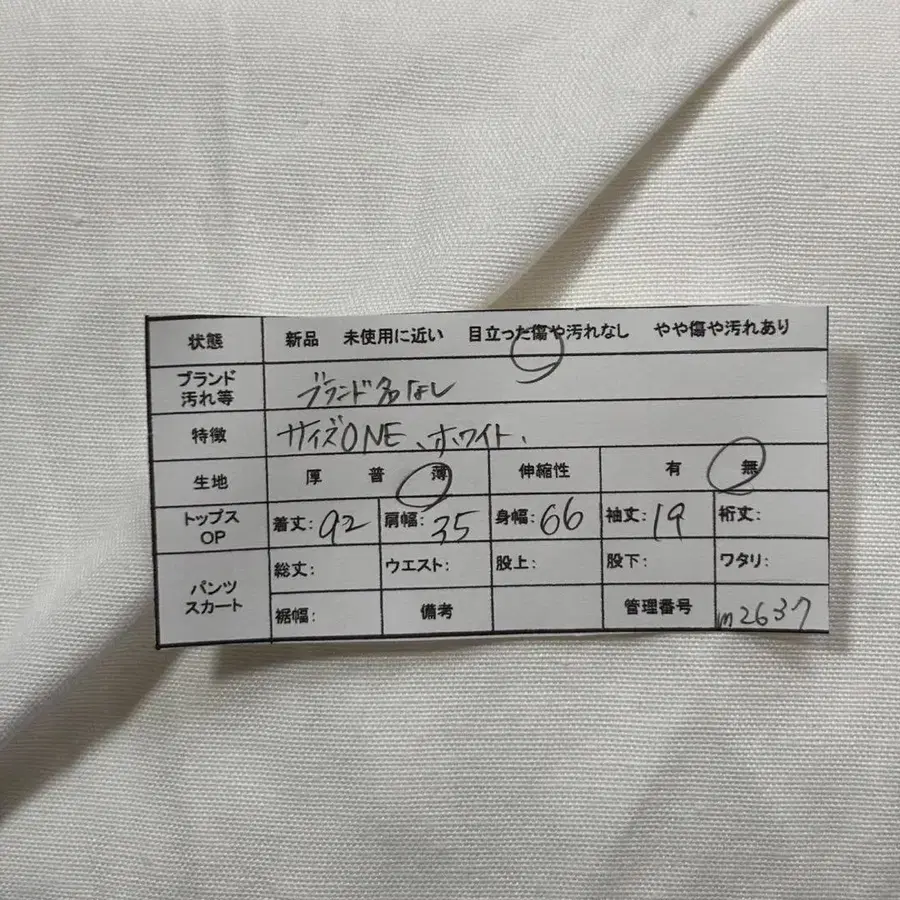 状態 新品 未使用に近い 目立った傷や汚れなし やや傷や汚れあり
ブランド
汚れ等 ブランド名なし
特徴 サイズONE、ホワイト、
生地 厚 普 薄 伸縮性 有 無
トップス
OP 着丈:92 肩幅:35 身幅:66 袖丈:19 裄丈:
パンツ
スカート 総丈: ウエスト: 股上: 股下: ワタリ:
裾幅: 備考 管理番号 m2637